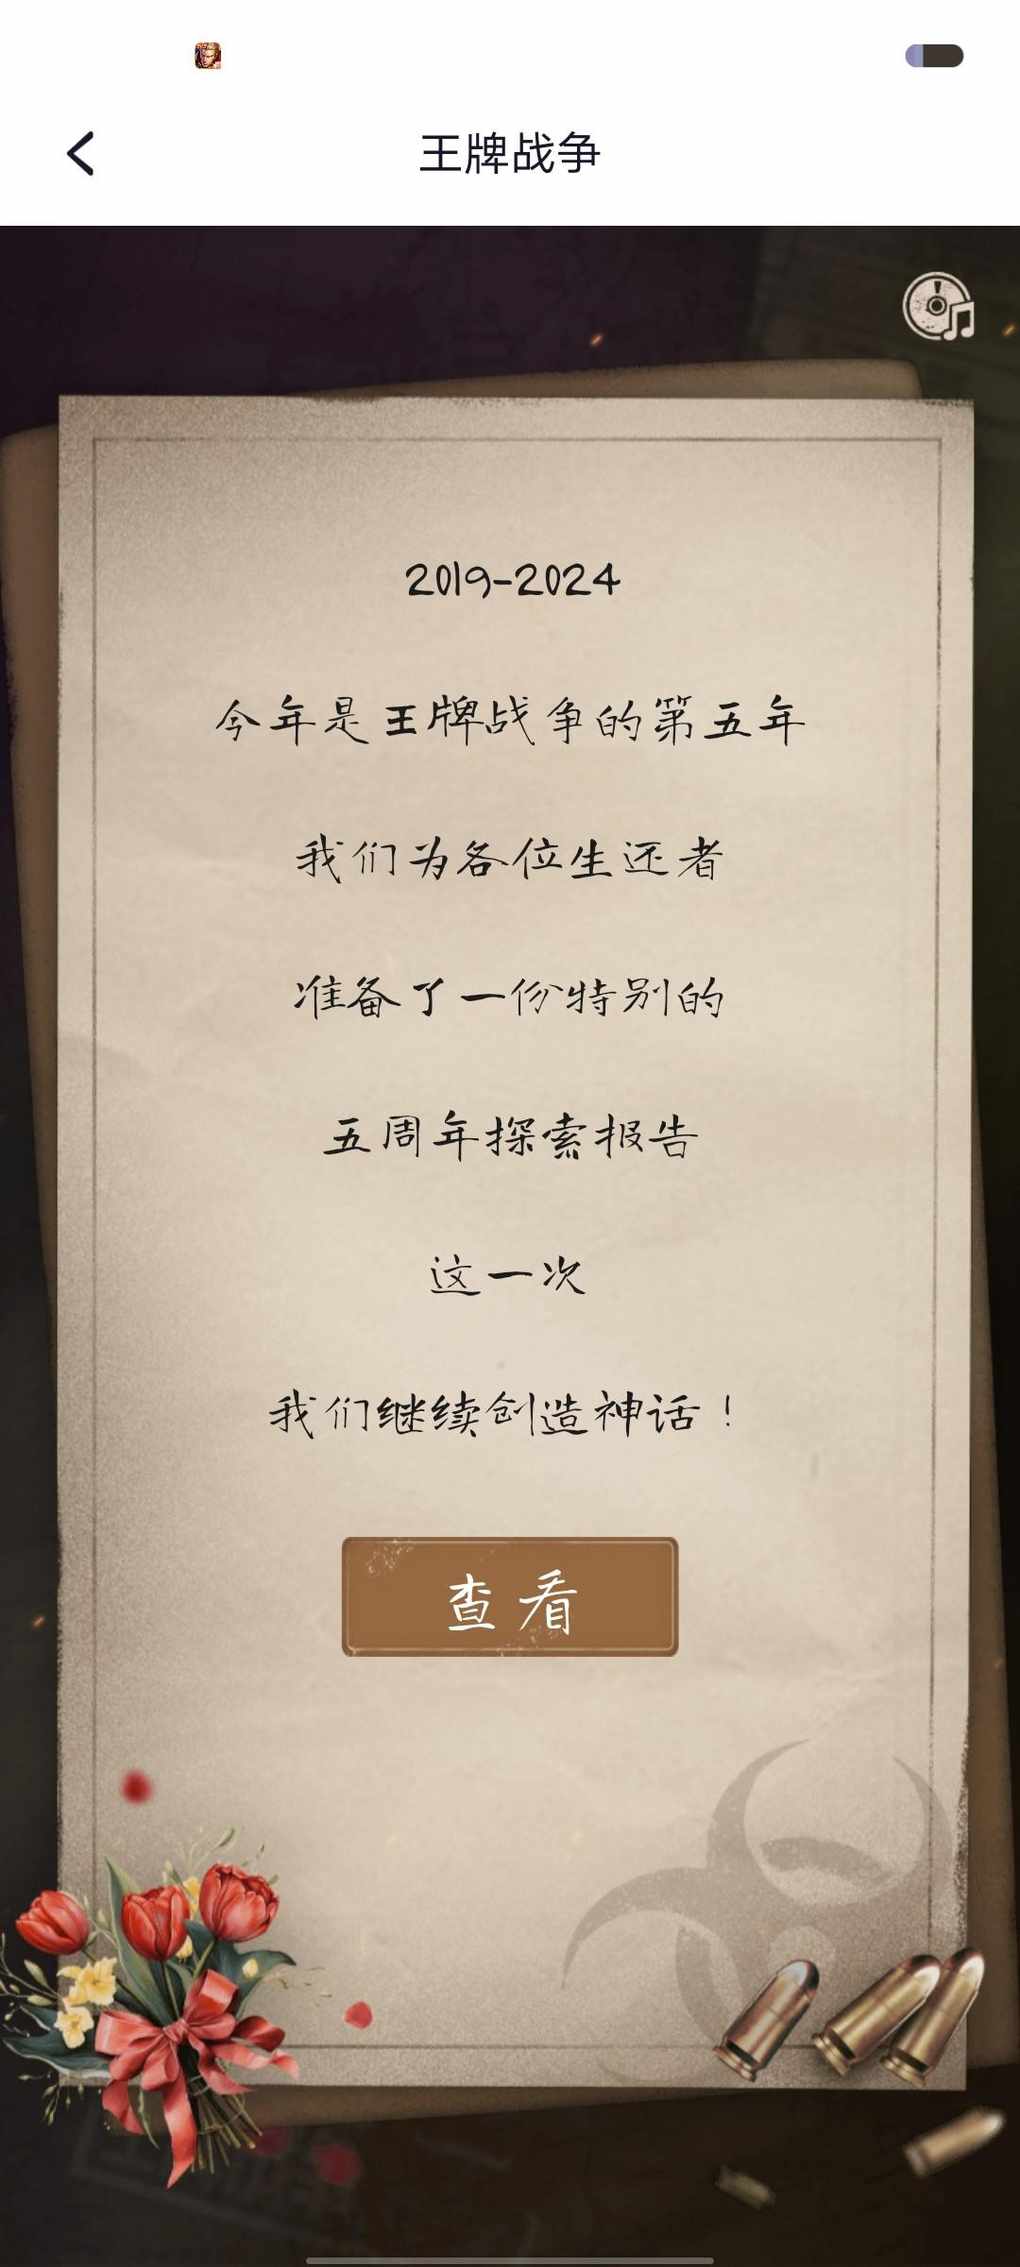 王牌战争
2019-2024
今年是王牌战争的第五年
我们为各位生还者
准备了一份特别的
五周年探索报告
这一次
我们继续创造神话！
查看